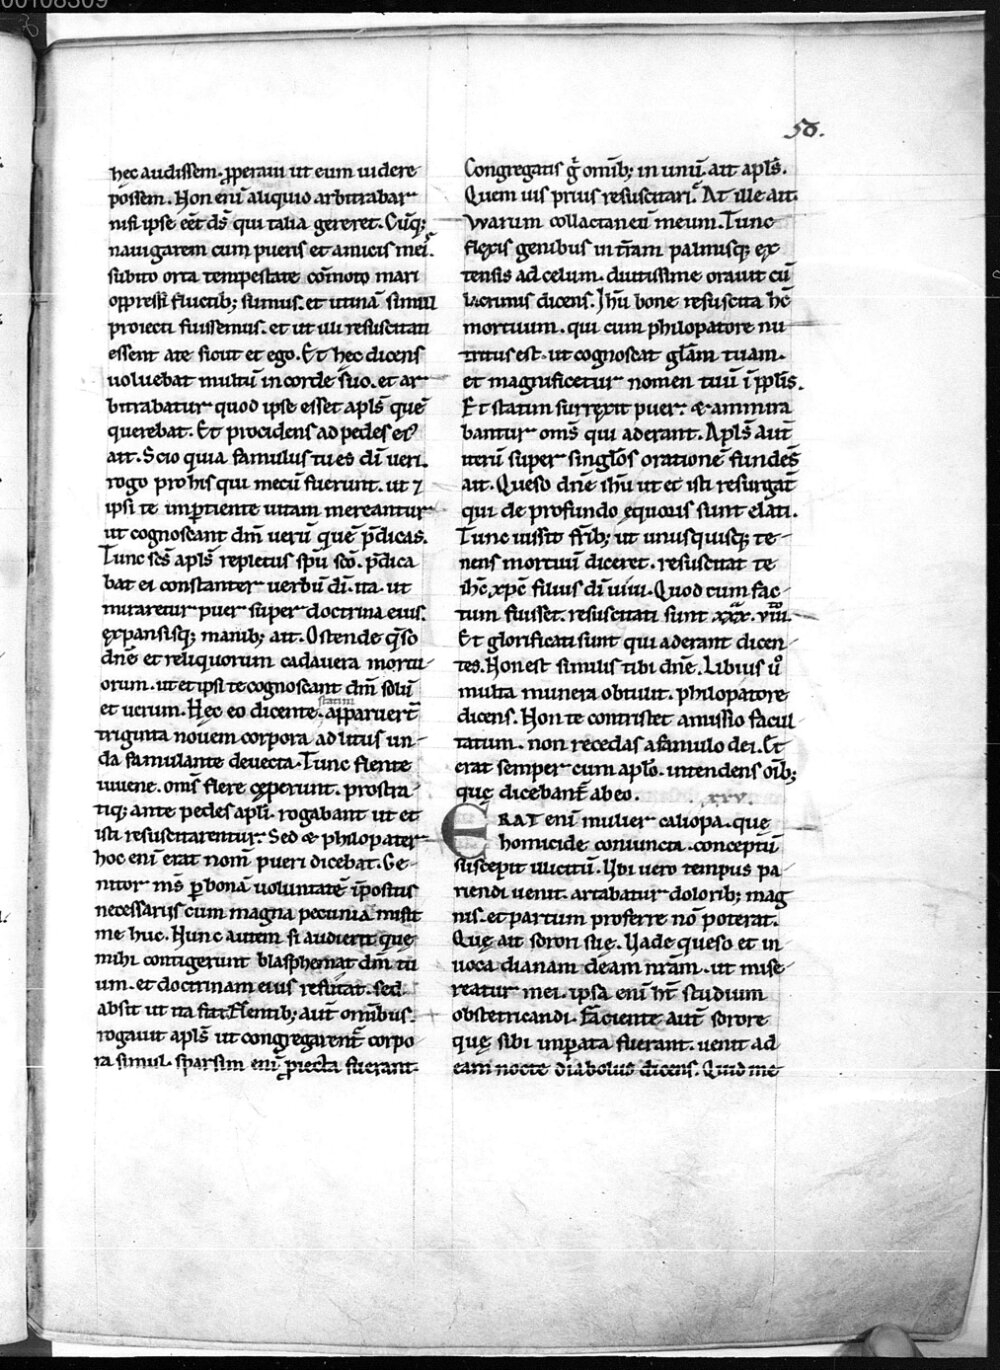 00108309
50.
hec audissem. ꝓperaui ut eum uidere
possem. Non eni᷒ aliquid arbitrabar
nisi ipse eēt ds̄ qui talia gereret. Cūq;
nauigarem cum pueris et amicis meis.
subito orta tempestate cōmoto mari
oppressi fluctib; sumus. et utinā simul
proiecti fuissemus. et ut uiri resuscitati
essent a te sicut et ego. Et hec dicens
uoluebat multū in corde suo. et ar
bitrabatur quod ipse esset apls̄ quē
querebat. Et procidens ad pedes eiꝰ
ait. Scio quia famulus tu es dī ueri.
rogo pro his qui mecū fuerunt. ut ⁊
ipsi te impertiente uitam mereantur
ut cognoscant dm̄ uerū quē p̄dicas.
Tunc scs̄ apls̄ repletus spū sco᷒. p̄dica
bat ei constanter uerbū dī. ita ut
miraretur puer super doctrina eius.
ęxpansisq; manib; ait. Ostende q̄so
dnē et reliquorum cadauera mortu
orum. ut et ipsi te cognoscant dm̄ solū
et uerum. Hęc eo dicente. statim apparuert̄
triginta nouem corpora ad litus un
da famulante deuecta. Tunc flente
iuuene. oms̄ flere cęperunt. prostra
tiq; ante pedes apli. rogabant ut et
isti resuscitarentur. Sed & philopater
hoc eni᷒ erat nom̄ pueri dicebat. Ge
nitor ms̄ ꝑ bonā uoluntatē īpositis
necessariis cum magna pecunia misit
me huc. Nunc autem si audierit quę
mihi contigerunt blasphemat dm̄ tu
um. et doctrinam eius refutat. sed
absit ut ita fiat. Flentib; aut̄ omībus.
rogauit apls̄ ut congregarent̄ corpo
ra simul. sparsim eni᷒ ꝓiecta fuerant.
Congregatis g̊ omib; in unū. ait apls̄.
Quem uis prius resuscitari. At ille ait.
Warum collactaneū meum. Tunc
flexis genibus in tr̄am palmisq; ex
tensis ad celum. diutissime orauit cū
lacrimis dicens. Ihū bone resuscita hc̄
mortuum. qui cum philopatore nu
tritus est. ut cognoscat glām tuam.
et magnificetur nomen tuū ī pplīs.
Et statim surrexit puer. & ammira
bantur oms̄ qui aderant. Apls̄ aut̄
iterū super singlo̅s orationē fundēs
ait. Queso dnē ihū ut et isti resurgāt
qui de profundo ęquoris sunt elati.
Tunc iussit frīb; ut unusquisq; te
nens mortuū diceret. resuscitat te
ihc̄ xpc̄ filius dī uiui. Quod cum fac
tum fuisset. resuscitati sunt xxx. viiii.
Et glorificati sunt qui aderant dicen
tes. Non est similis tibi dnē. Libius u̇
multa munera obtulit. philopatore
dicens. Non te contristet amissio facul
tatum. non recedas a famulo dei. Et
erat semper cum aplo̅. intendens oīb;
quę dicebant̄ ab eo. xxv.
ERAT eni᷒ mulier caliopa. que
homicide coniuncta. conceptū
suscepit illicitū. Ubi uero tempus pa
riendi uenit. artabatur dolorib; mag
nis. et partum proferre nō poterat.
Quę ait sorori suę. Uade queso et in
uoca dianam deam nr̄am. ut mise
reatur mei. ipsa eni᷒ ht̄ studium
obstetricandi. Faciente aut̄ sorore
quę sibi imꝑata fuerant. uenit ad
eam nocte diabolus dicens. Quid me